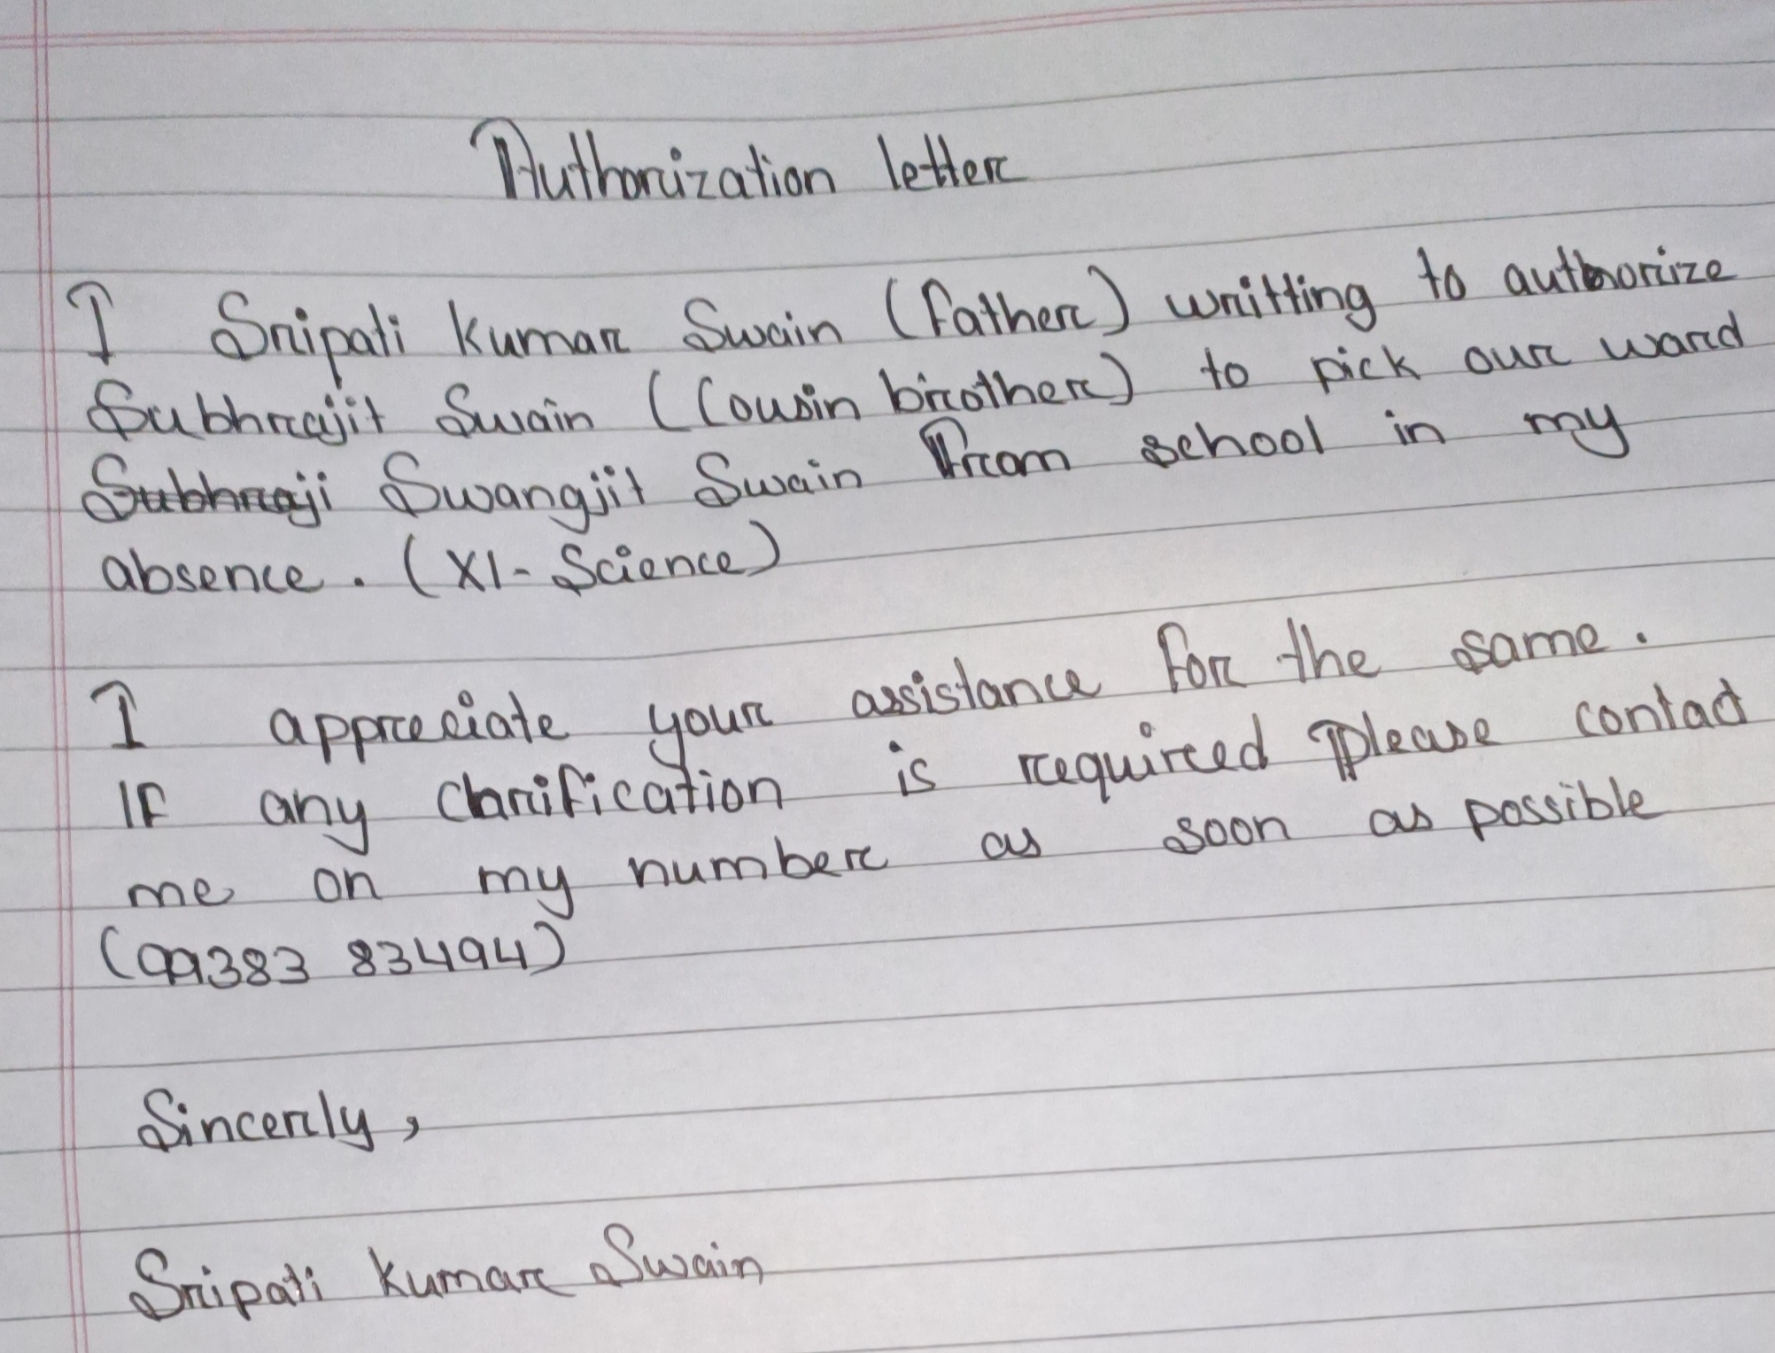 Authorization letter
I Sripati Kumar Swain (father) writting to authorize
Subhrajit Swain (Cousin brother) to pick our ward
Subhraji Swangjit Swain From school in my
absence. (XI-Science)
I appreciate your assistance for the same.
If any clarification is required please contact
me on my number as soon as possible
(99383 83494)
Sincerly,
Sripati Kumar Swain